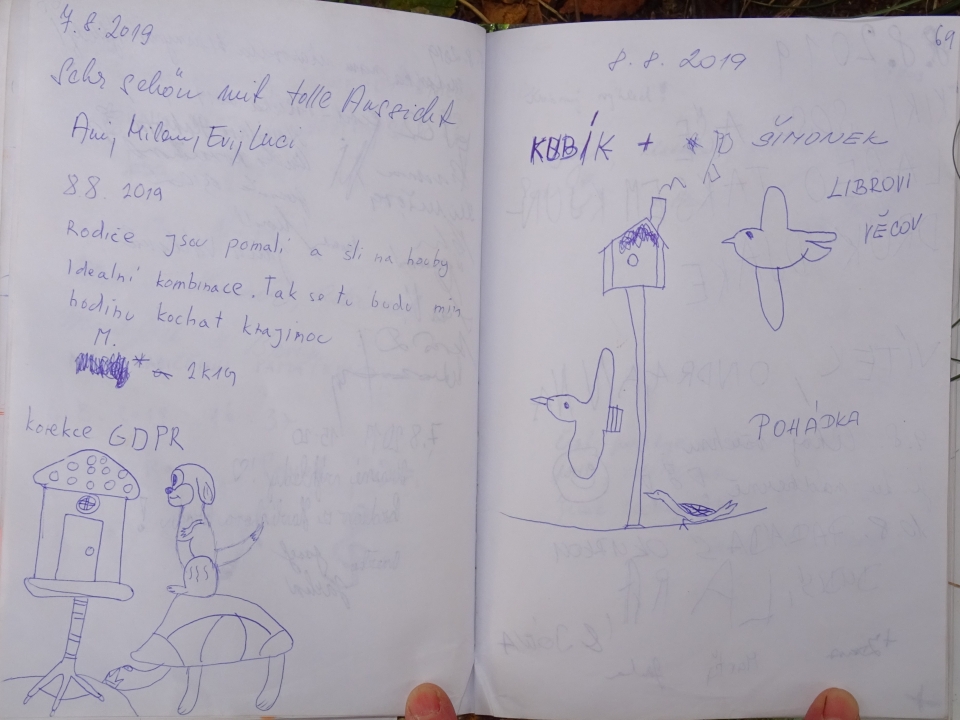 7.8.2019
Sehr schön mit tolle Aussicht
Ani, Milan, Evi, Luci
8.8. 2019
Rodiče jsou pomalí a šli na houby
Idealní kombinace. Tak se tu budu min
hodinu kochat krajinou
M.
* 2k19
korekce GDPR
69
8.8. 2019
KUBÍK + ŠIMONEK
LIBROVI
VĚCOV
POHÁDKA